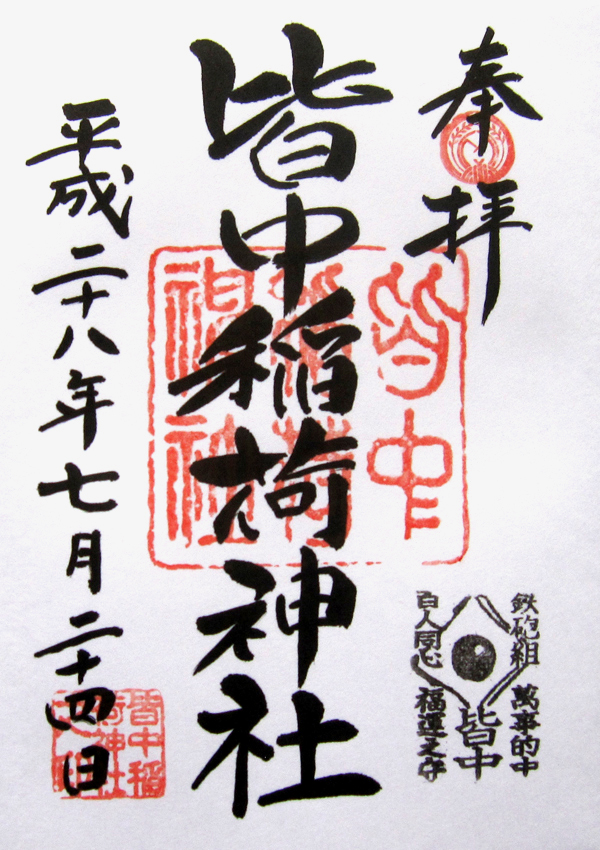 奉拝
皆中稲荷神社
平成二十八年七月二十四日
皆中
稲荷
神社
鉄砲組 萬事的中
皆中
百人同心 福運之守
皆中稲
荷神社
之印